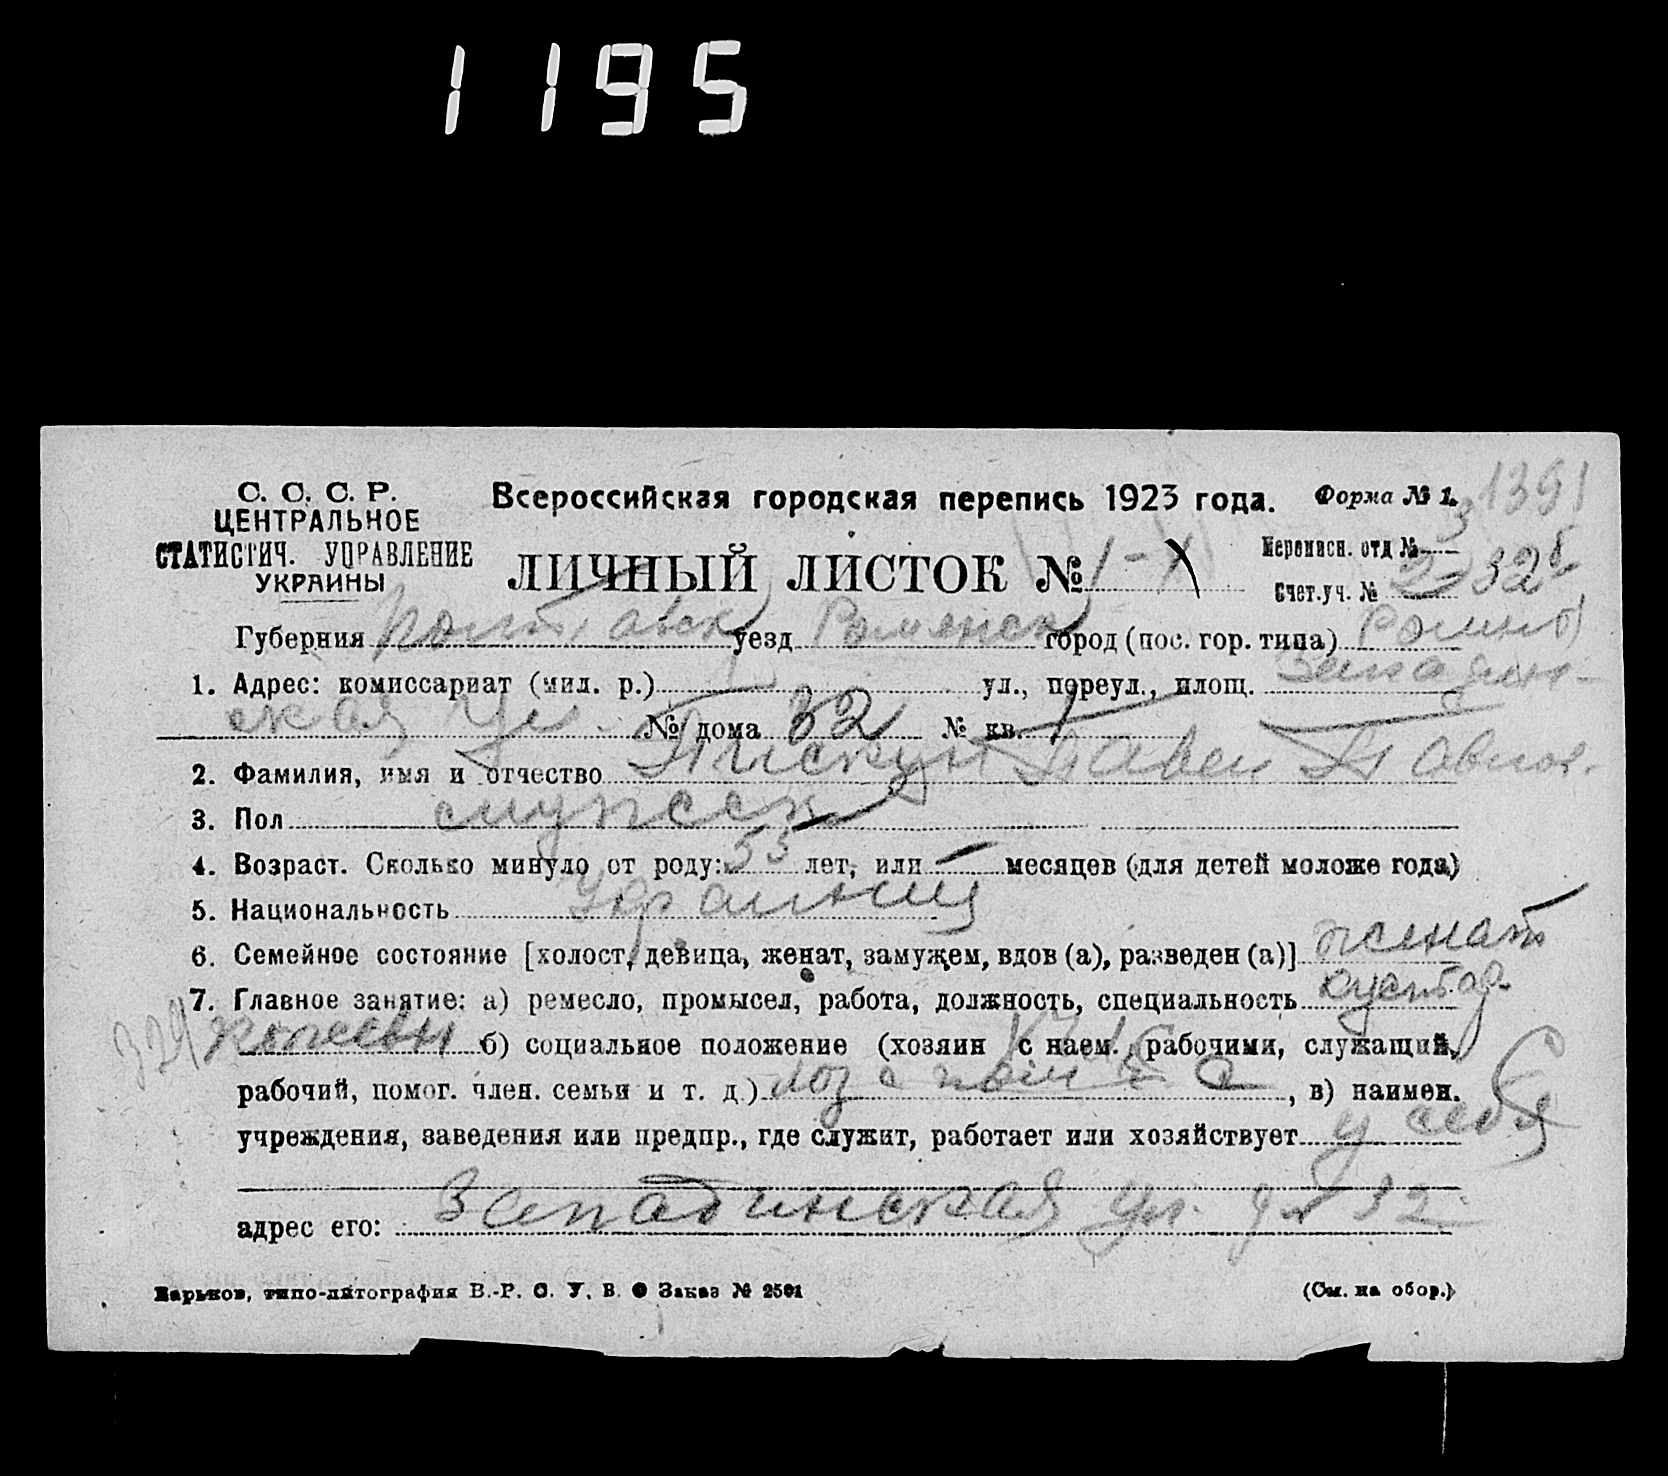 1195
С. С. С. Р.
ЦЕНТРАЛЬНОЕ
СТАТИСТИЧ. УПРАВЛЕНИЕ
УКРАИНЫ
Всероссийская городская перепись 1923 года.
Форма № 1.
1391
ЛИЧНЫЙ ЛИСТОК №
Переписн. отд № 3
Счет.уч. № 2 32
Губерния Полтавск уезд Роменск город (пос. гор. типа) Ромны
1. Адрес: комиссариат (мил. р.) ул., переул., площ. Западин-
ская ул. № дома 32 № кв. 1
2. Фамилия, имя и отчество Пискун Павел Павлов.
3. Пол мужск
4. Возраст. Сколько минуло от роду: 53 лет, или — месяцев (для детей моложе года)
5. Национальность Украинец
6. Семейное состояние [холост, девица, женат, замужем, вдов (а), разведен (а)] женат
7. Главное занятие: а) ремесло, промысел, работа, должность, специальность кустар.
329 кожевн б) социальное положение (хозяин с наем. рабочими, служащий,
рабочий, помог. член. семьи и т. д.) хоз с пом , в) наимен.
учреждения, заведения или предпр., где служит, работает или хозяйствует у себя
адрес его: Западинская ул. д № 32
Харьков, типо-литография В.-Р. С. У. В. О Заказ № 2501
(См. на обор.)